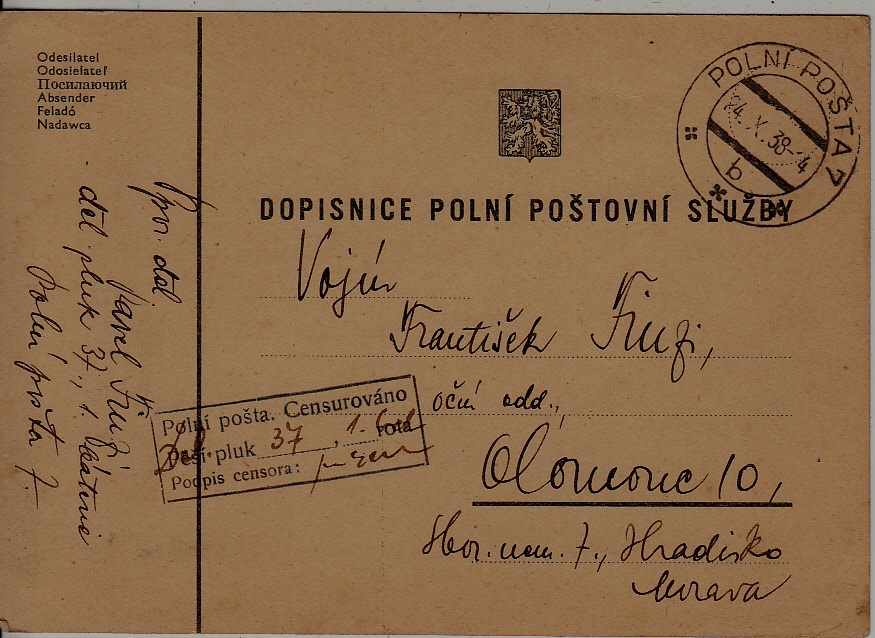 Odesilatel
Odosielateľ
Посилаючий
Absender
Feladó
Nadawca
POLNÍ POŠTA 7
24. X. 38-4
b
DOPISNICE POLNÍ POŠTOVNÍ SLUŽBY
Vojín
František
oční odd.,
Olomouc 10,
nem. 7., Hradisko
Morava
Pavel
děl pluk 37., 1.
Polní pošta 7.
Polní pošta. Censurováno
Pěší pluk 37, 1. rota
Podpis censora: